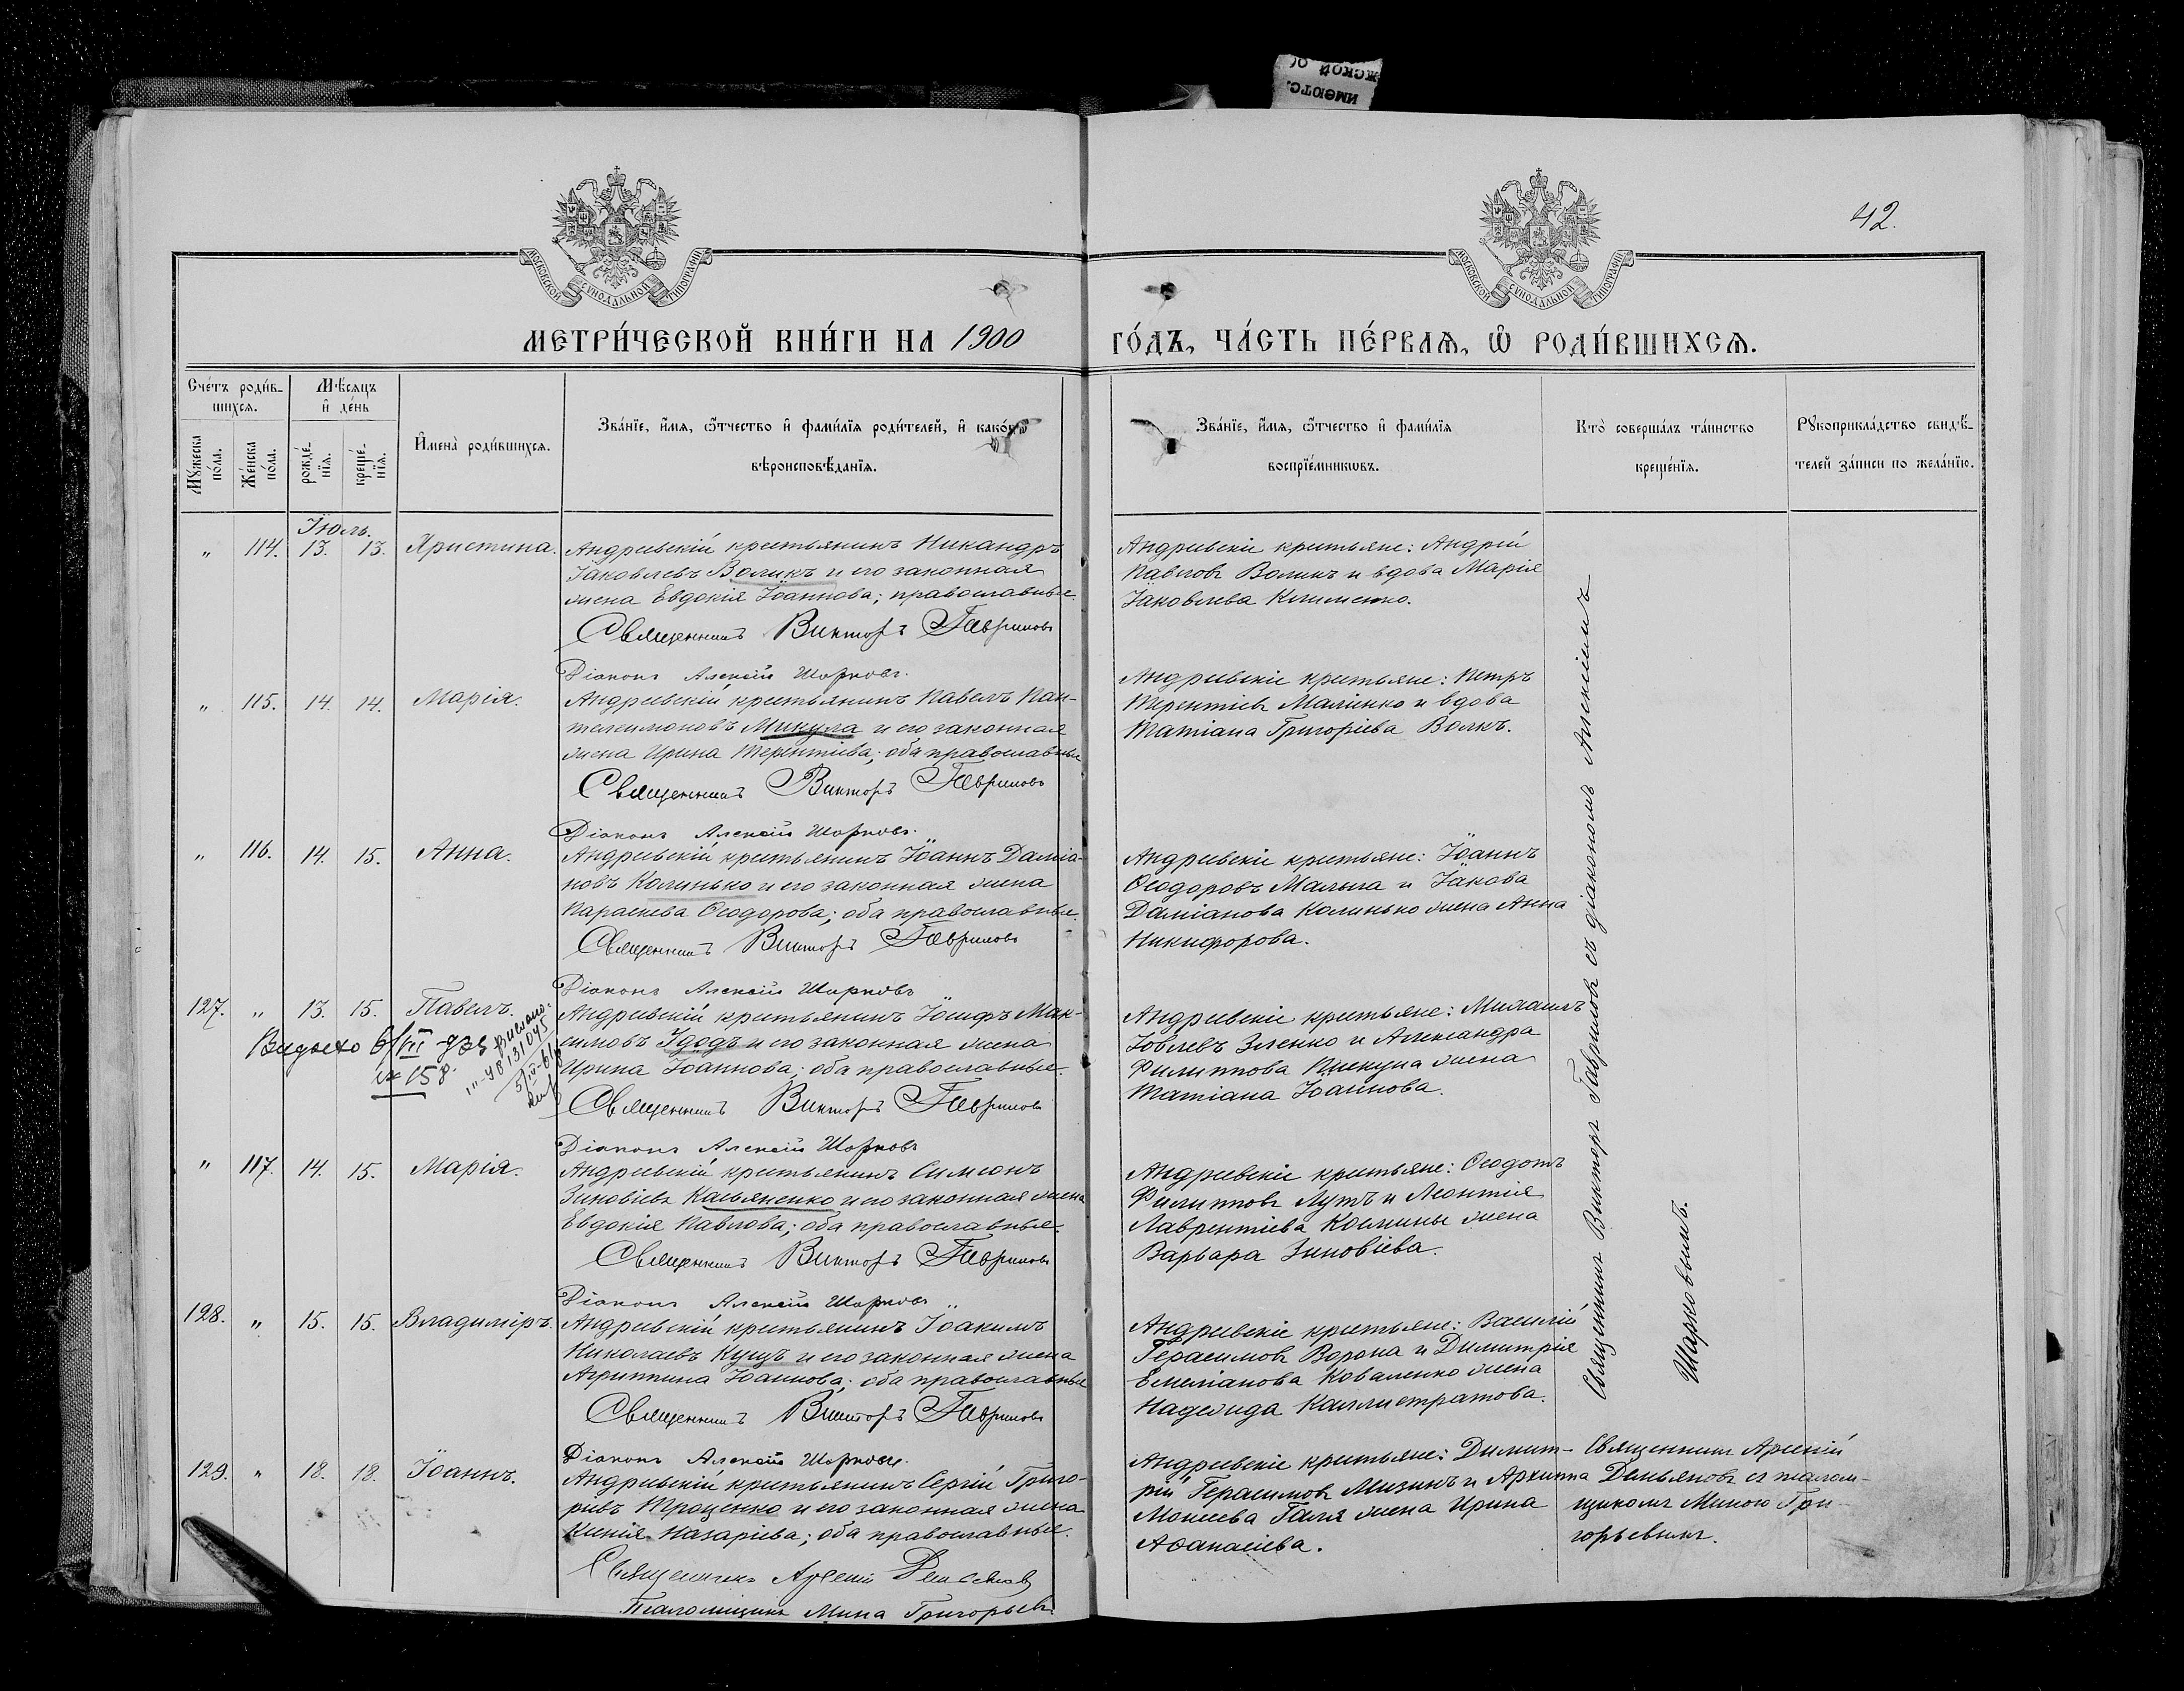 42.
МОСКОВСКОЙ СѴНОДАЛЬНОЙ ТИПОГРАФІИ
МОСКОВСКОЙ СѴНОДАЛЬНОЙ ТИПОГРАФІИ
МЕТРИ́ЧЕСКОЙ КНИ́ГИ НА 1900 ГО́ДЪ, ЧА́СТЬ ПЕ́РВАѦ, Ѿ РОДИ́ВШИХСѦ.
Сче́тъ роди́в-
шихсѧ.
Мѣ́сѧцъ
и҆ де́нь
Мꙋ́жеска
по́ла.
Же́нска
по́ла.
рожде́-
нїѧ.
креще́-
нїѧ.
И҆мена̀ роди́вшихсѧ.
Зва́нїе, и҆́мѧ, ѻ҆́тчество и҆ фами́лїѧ роди́телей, и҆ како́гѡ
вѣроисповѣ́данїѧ.
Зва́нїе, и҆́мѧ, ѻ҆́тчество и҆ фами́лїѧ
воспрїе́мникѡвъ.
Кто̀ соверша́лъ та́инство
креще́нїѧ.
Рꙋкоприкла́дство свидѣ́-
телей за́писи по жела́нїю.
Іюль.
" 114. 13. 13. Христина.
Андреевскій крестьянинъ Никандръ
Іаковлевъ Воликъ и его законная
жена Евдокія Іоаннова; православные.
Священникъ Викторъ Гавриловъ
Діаконъ Алексій Шарковъ.
Андреевскіе крестьяне: Андрей
Павловъ Воликъ и вдова Марія
Іаковлева Клименко.
" 115. 14. 14. Марія.
Андреевскій крестьянинъ Павелъ Пан-
телеимоновъ Микула и его законная
жена Ирина Терентіева; оба православные
Священникъ Викторъ Гавриловъ
Діаконъ Алексій Шарковъ.
Андреевскіе крестьяне: Петръ
Терентіевъ Маліенко и вдова
Татіана Григоріева Волкъ.
" 116. 14. 15. Анна.
Андреевскій крестьянинъ Іоаннъ Даміа-
новъ Калинько и его законная жена
Параскева Ѳеодорова; оба православные.
Священникъ Викторъ Гавриловъ
Діаконъ Алексій Шарковъ
Андреевскіе крестьяне: Іоаннъ
Ѳеодоровъ Малыга и Іакова
Даміанова Калинько жена Анна
Никифорова.
127. " 13. 15. Павелъ.
Андреевскій крестьянинъ Іосифъ Мак-
симовъ Удодъ и его законная жена
Ирина Іоаннова; оба православные.
Священникъ Викторъ Гавриловъ
Діаконъ Алексій Шарковъ
Андреевскіе крестьяне: Михаилъ
Іовлевъ Зленко и Александра
Филиппова жена
Татіана Іоаннова.
" 117. 14. 15. Марія.
Андреевскій крестьянинъ Симеонъ
Зиновіевъ Касьяненко и его законная жена
Евдокія Павлова; оба православные.
Священникъ Викторъ Гавриловъ
Діаконъ Алексій Шарковъ
Андреевскіе крестьяне: Ѳеодотъ
Филипповъ Лутъ и Леонтія
Лаврентіева жена
Варвара Зиновіева.
128. " 15. 15. Владиміръ.
Андреевскій крестьянинъ Іоакимъ
Николаевъ Кущъ и его законная жена
Агриппина Іоаннова; оба православные
Священникъ Викторъ Гавриловъ
Діаконъ Алексій Шарковъ.
Андреевскіе крестьяне: Василій
Герасимовъ Ворона и Димитрія
Емеліанова Коваленко жена
Надежда Каллистратова.
Священникъ Викторъ Гавриловъ съ діакономъ Алексіемъ
Шарковымъ.
129. " 18. 18. Іоаннъ.
Андреевскій крестьянинъ Сергій Григо-
ріевъ Проценко и его законная жена
Ксенія Назаріева; оба православные.
Священникъ Арсеній Демьяновъ
Псаломщикъ Мина Григорьевъ
Андреевскіе крестьяне: Димит-
рій Герасимовъ Мизинъ и Архиппа
Моисеева Галя жена Ирина
Аѳанасіева.
Священникъ Арсеній
Демьяновъ съ псалом-
щикомъ Миною Гри-
горьевымъ.